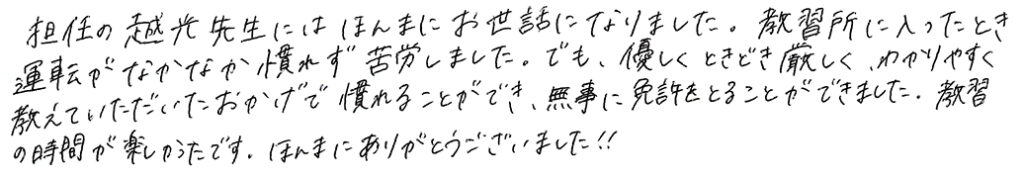 担任の越光先生にはほんまにお世話になりました。教習所に入ったとき
運転がなかなか慣れず苦労しました。でも、優しくときどき厳しく、わかりやすく
教えていただいたおかげで慣れることができ、無事に免許をとることができました。教習
の時間が楽しかったです。ほんまにありがとうございました!!